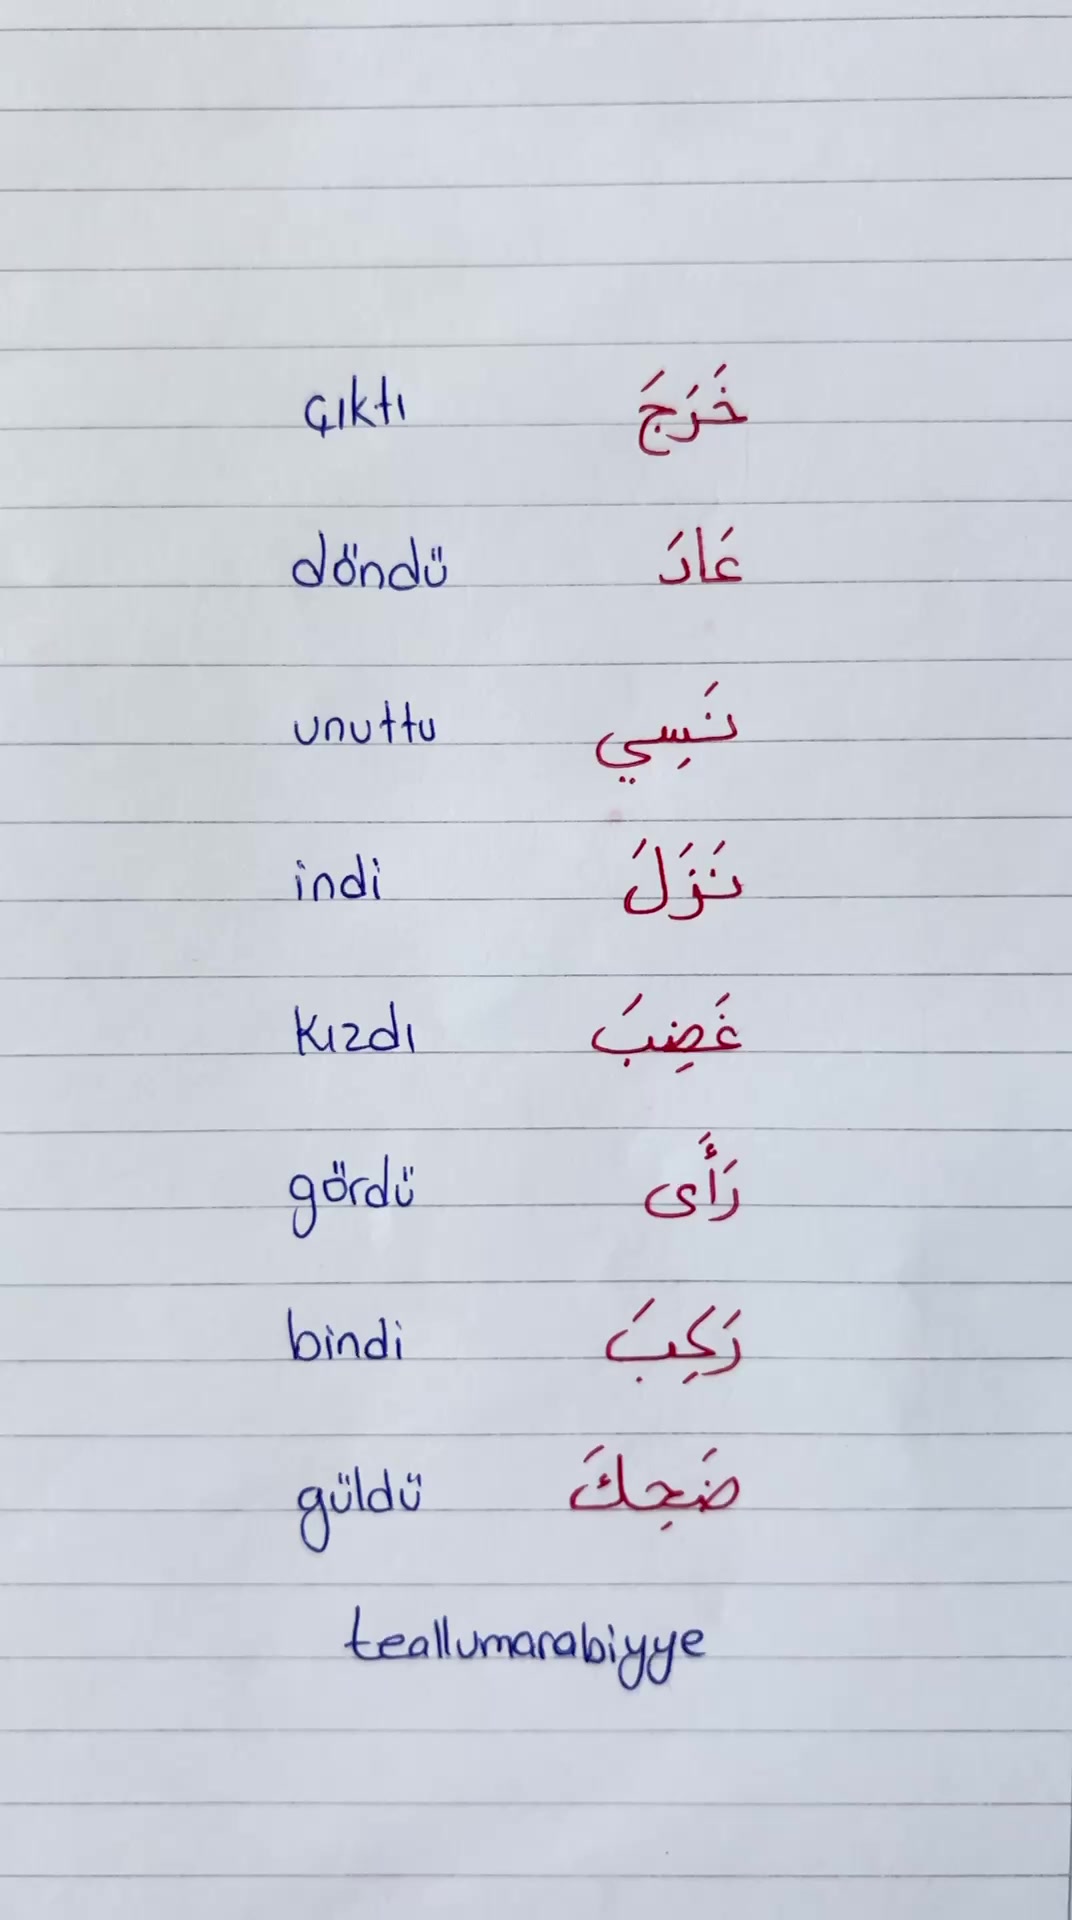 çıktı خَرَجَ
döndü عَادَ
unuttu نَسِي
indi نَزَلَ
kızdı غَضِبَ
gördü رَأَى
bindi رَكِبَ
güldü ضَحِكَ
teallumarabiyye